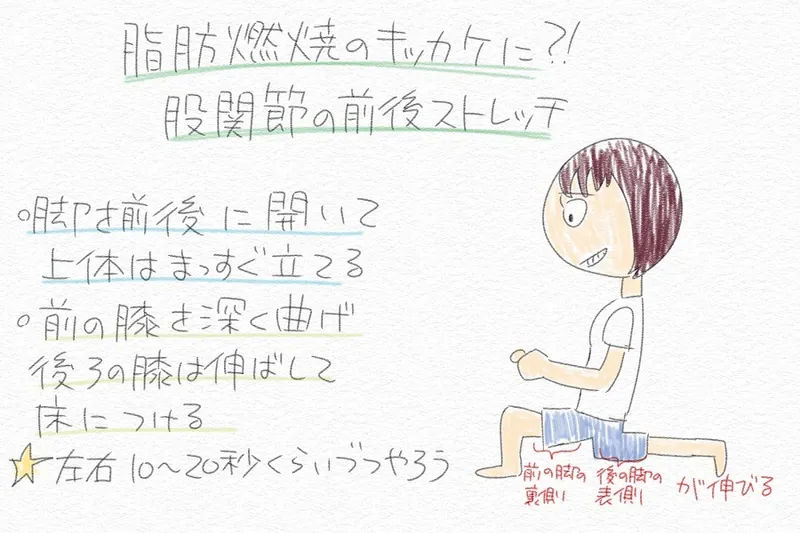 脂肪燃焼のキッカケに?!
股関節の前後ストレッチ
○脚を前後に開いて
上体はまっすぐ立てる
○前の膝を深く曲げ
後ろの膝は伸ばして
床につける
☆左右10〜20秒くらいづつやろう
前の脚の
裏側
後の脚の
表側
が伸びる